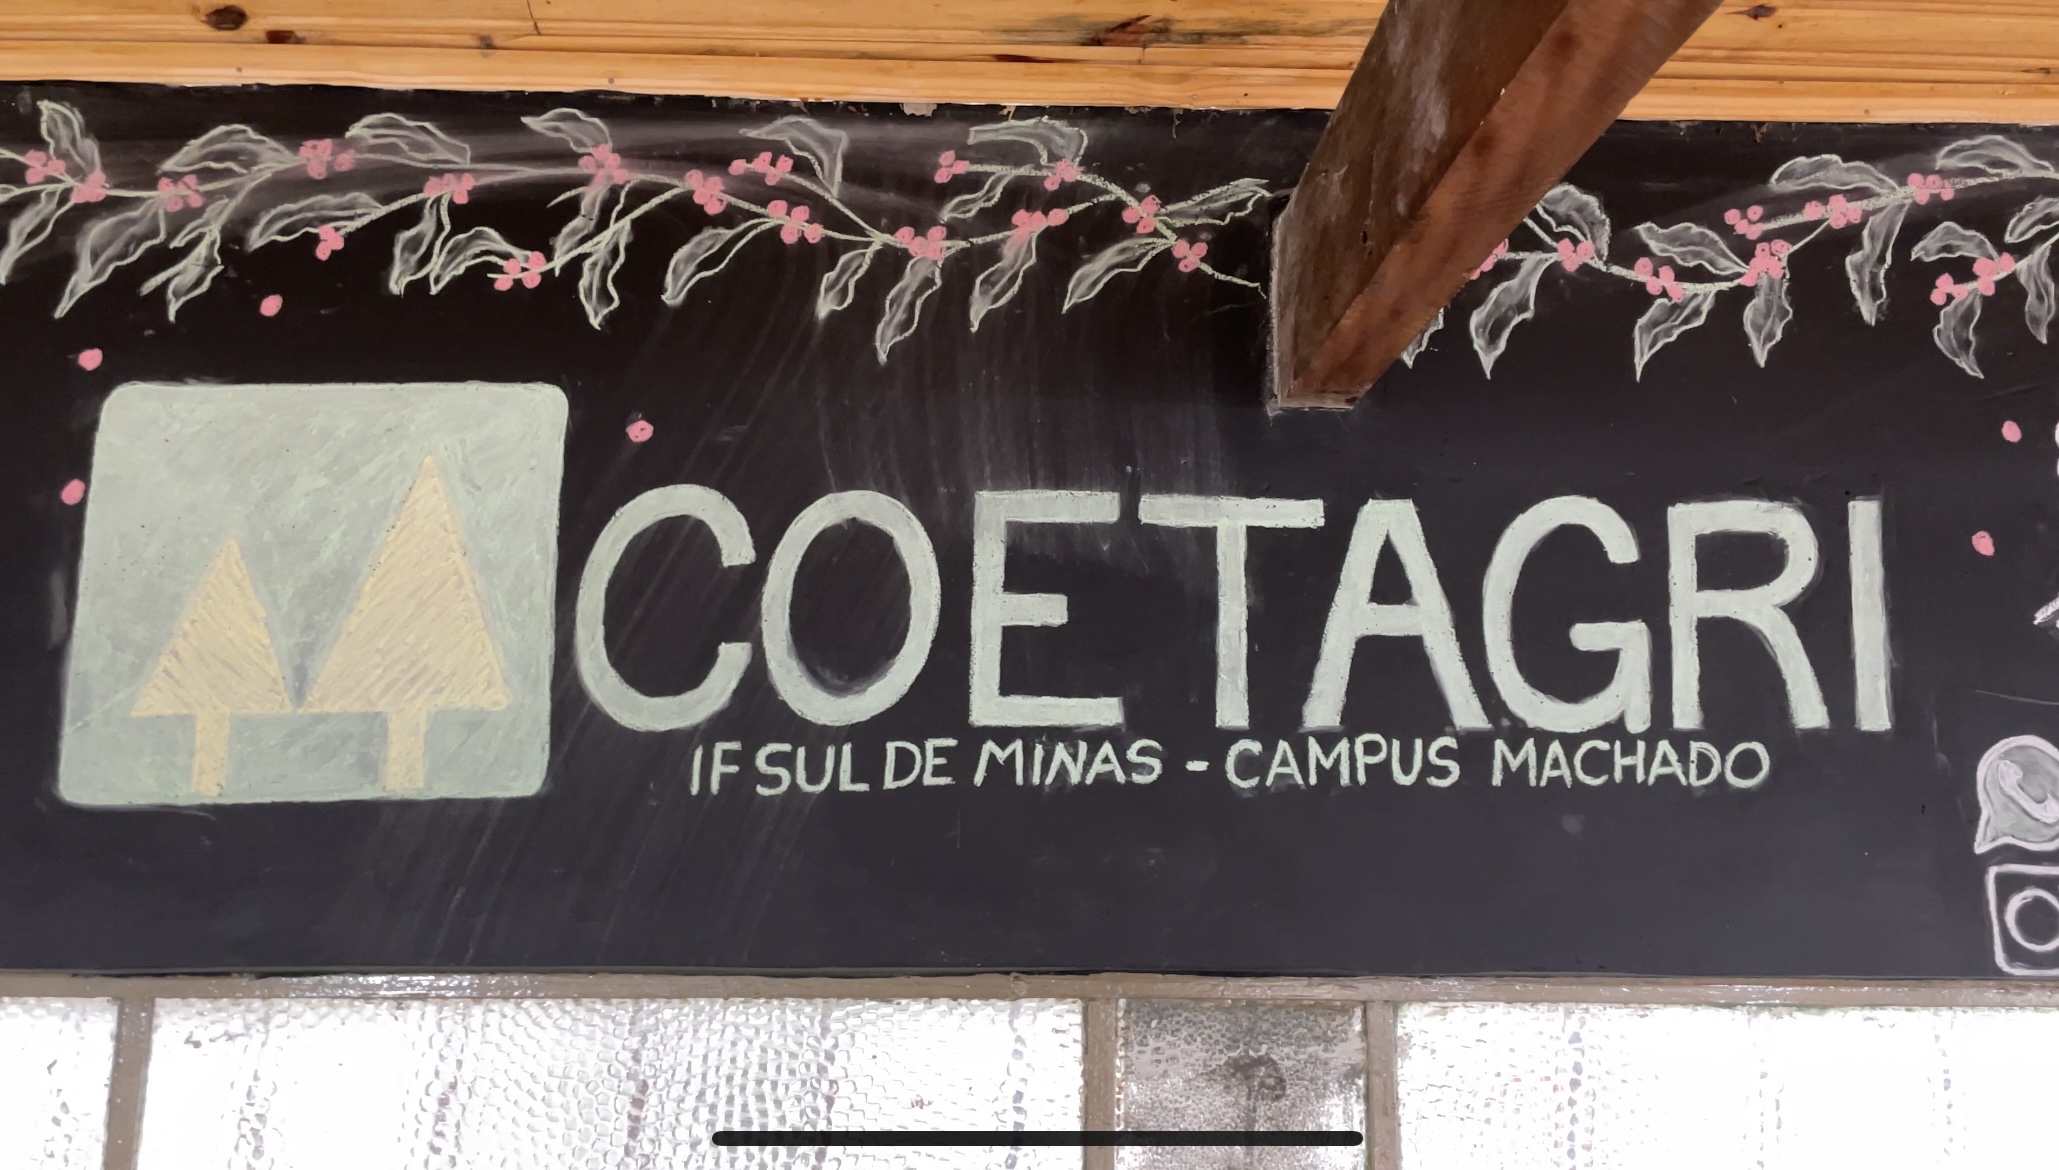 COETAGRI
IF SUL DE MINAS - CAMPUS MACHADO